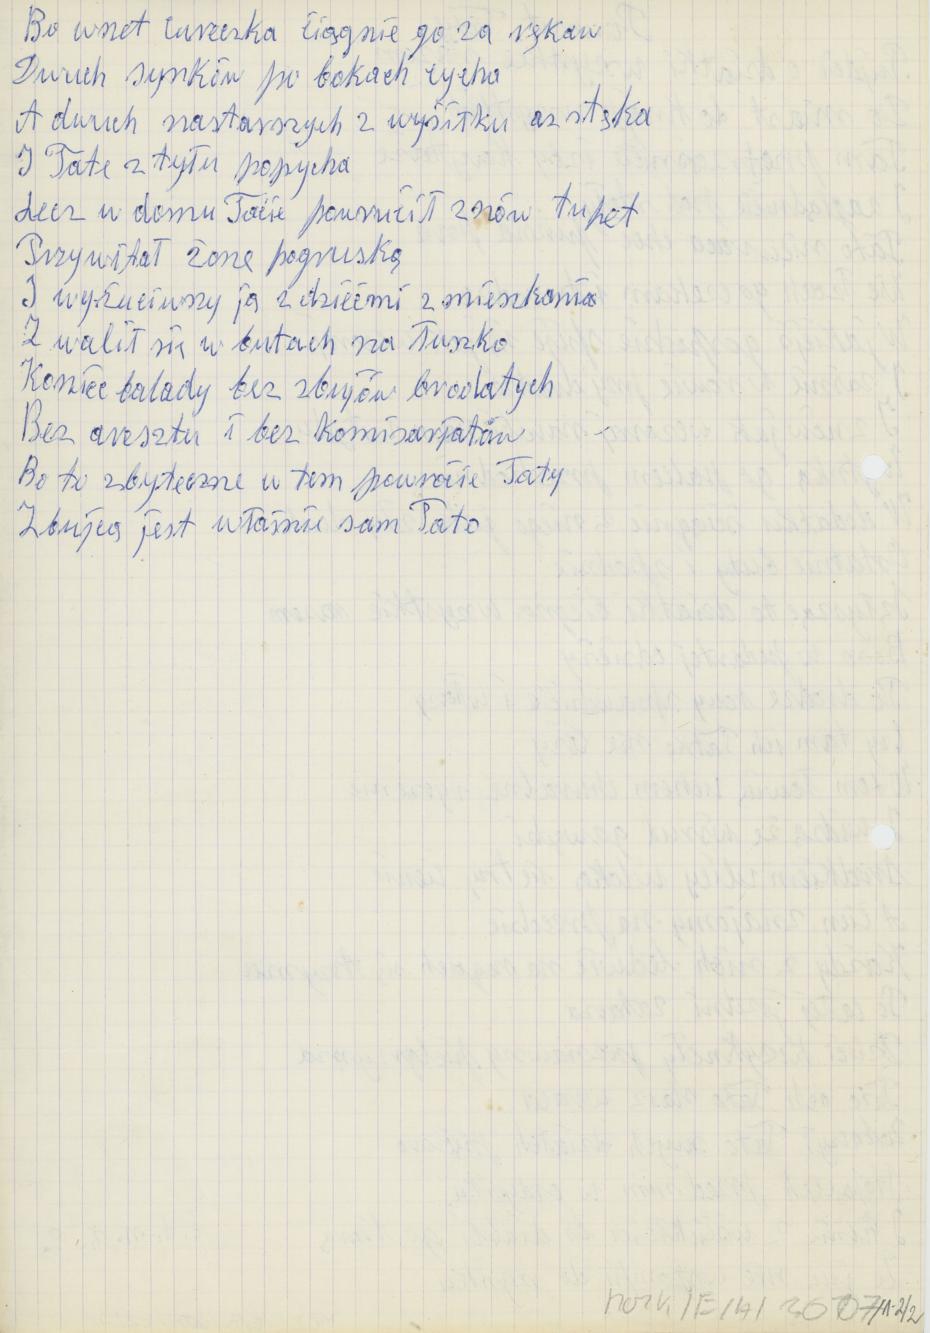 Bo wnet cureczka ciągnie go za rękaw
Dwuch synków po bokach czcha
A dwuch nastarszych z wysiłku az stęka
I Tate z tyłu popycha
Lecz w domu Tacie powrucił znów tupet
Przywitał żonę pogruską
I wyżuciwszy ją z dziećmi z mieszkania
Z walił się w butach na łuszko
Koniec balady bez zbujów brodatych
Bez aresztu i bez Komisarjatów
Bo to zbyteczne w tem powrócie Taty
Zbujcą jest własnie sam Tato
MOZK/E/A/ 2007/1-2/2